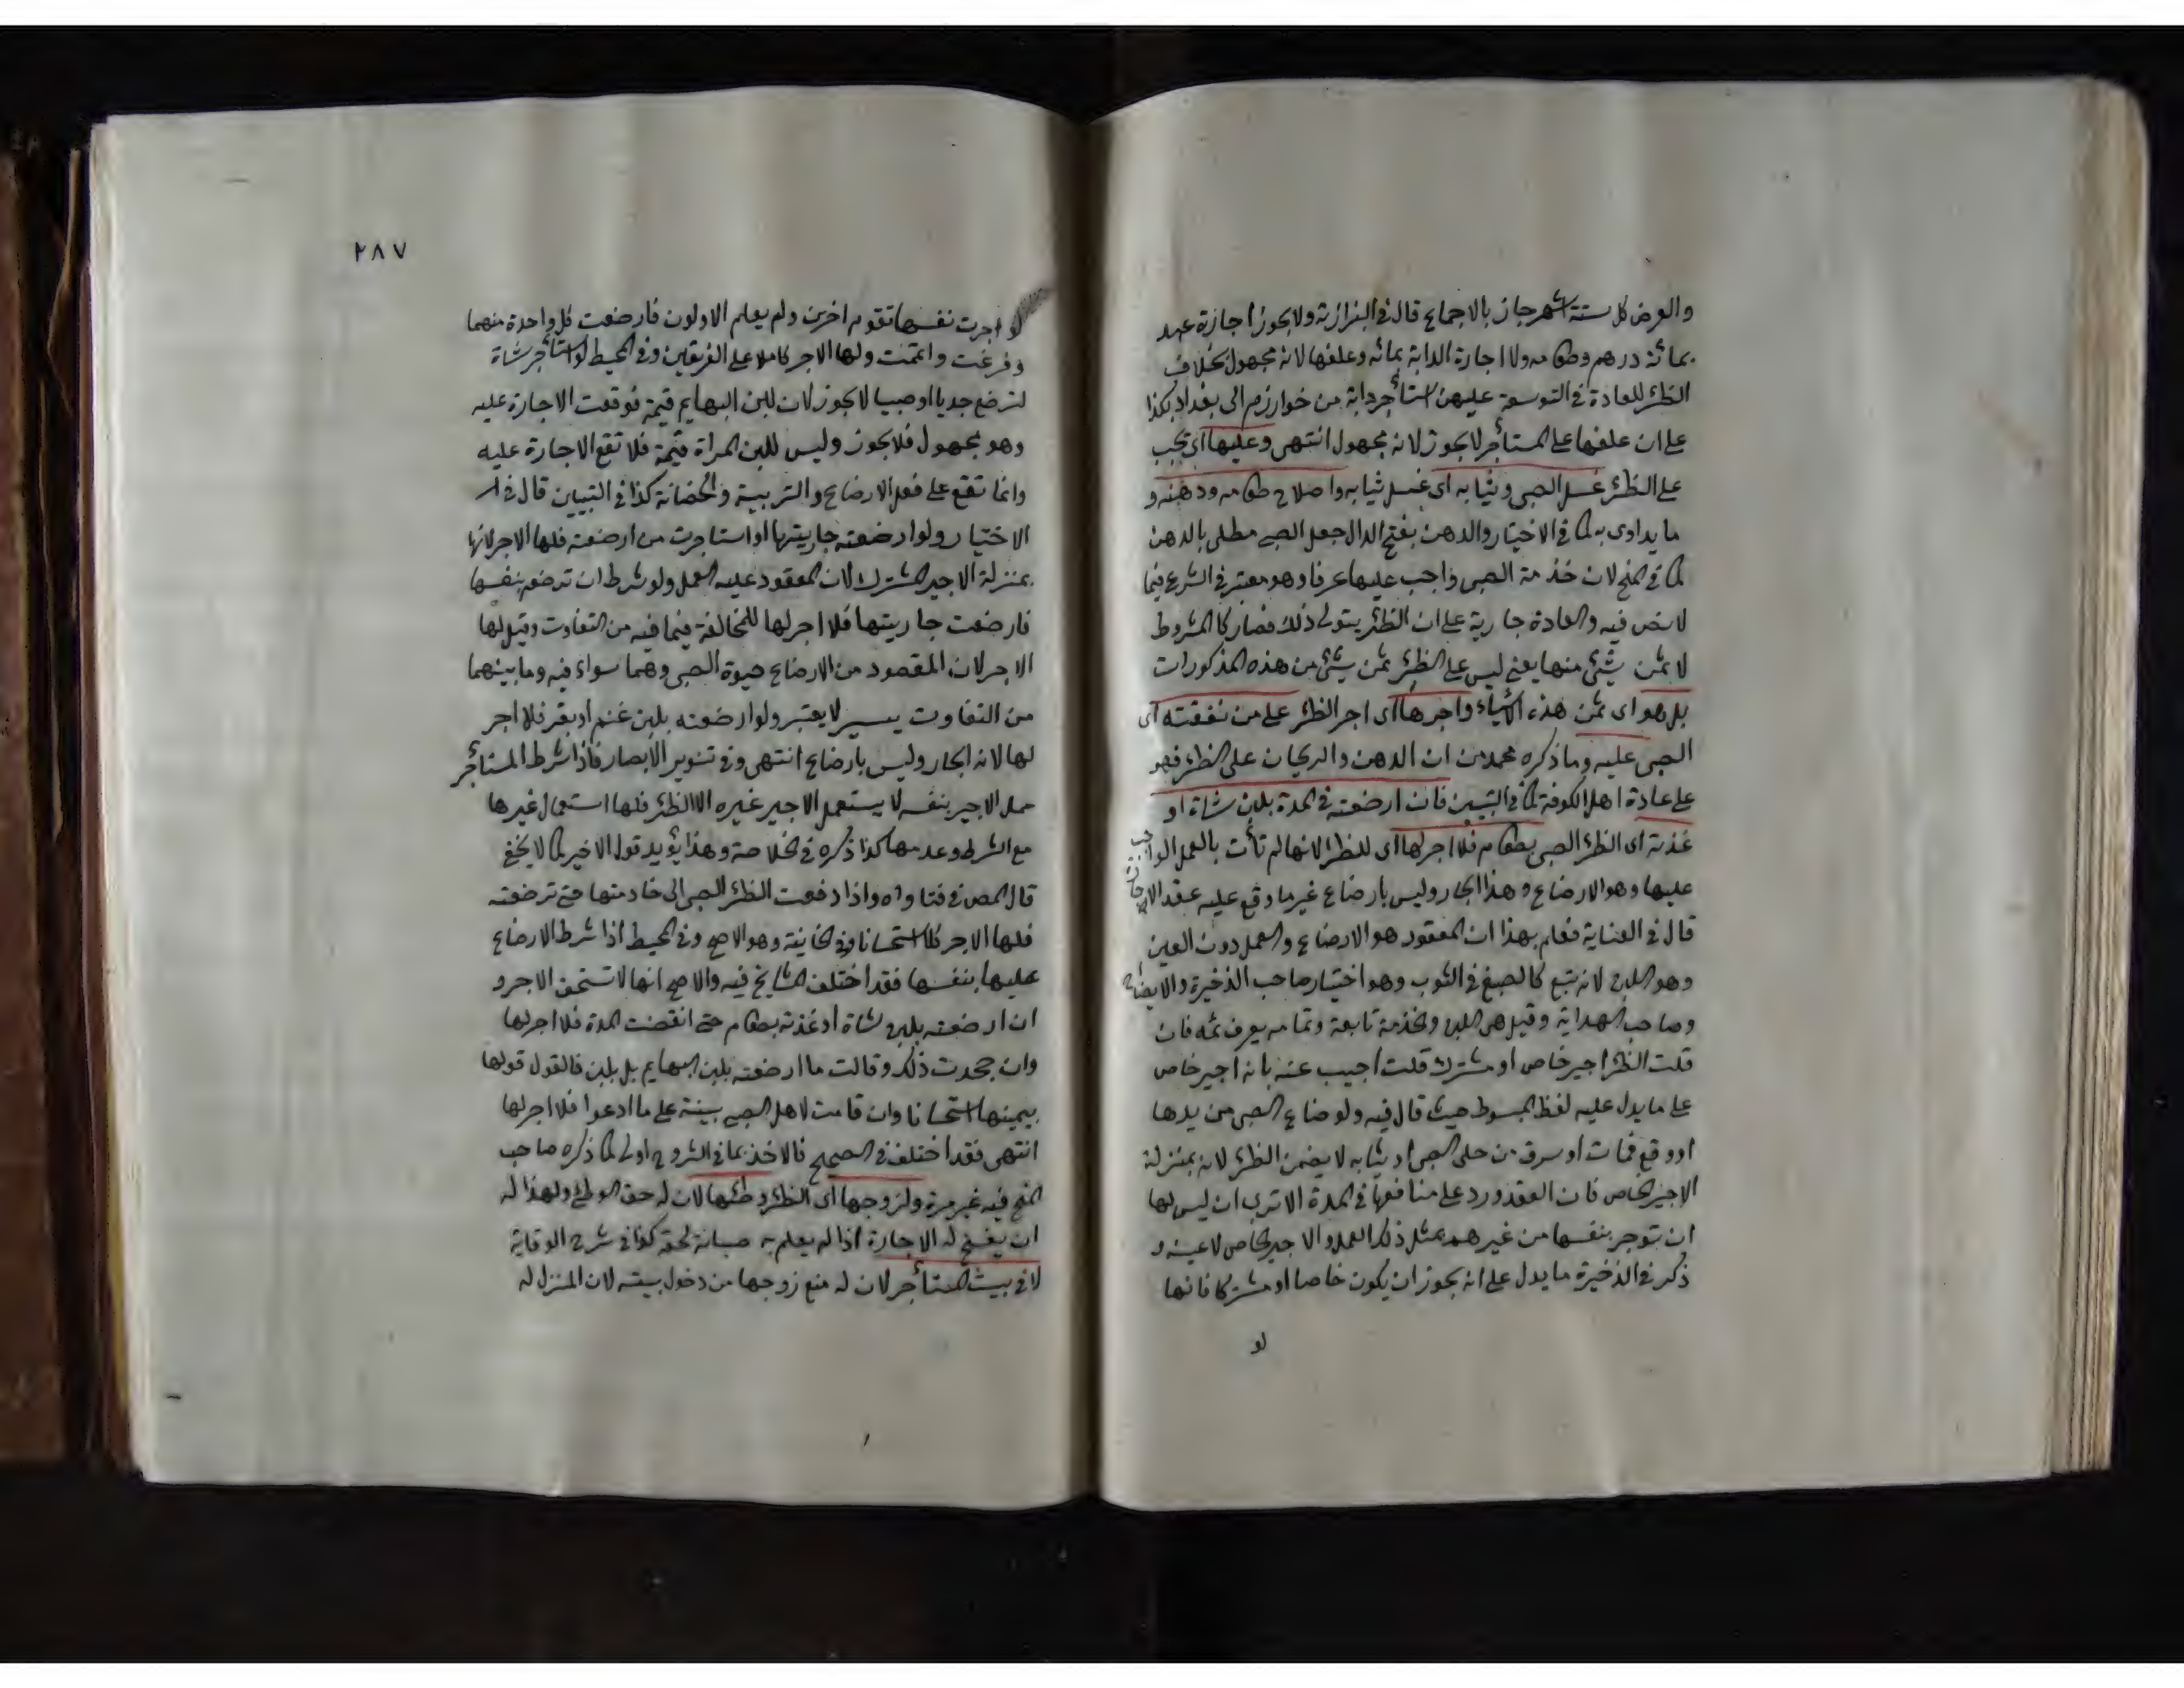 والعرض كل ستة اشهر جاز بالاجماع قال فى البزازية ولا يجوز اجازة عبد
بمائة درهم وطعامه ولا اجارة الدابة بمائه وعلفها لانه مجهول بخلاف
الظئر للعادة فى التوسعة عليهن استأجر دابة من خوارزم الى بغداد بكذا
على ان علفها على المستأجر لا يجوز لانه مجهول انتهى وعليها اى تجب
على الظئر غسل الصبى وثيابه اى غسل ثيابه واصلاح طعامه ودهنه و
ما يداوى به كما فى الاختيار والدهن بفتح الدال جعل الصبى مطلى بالدهن
كما فى المنح لان خدمة الصبى واجب عليها عرفا وهو معتبر فى الشرع فيما
لا نص فيه والعادة جارية على ان الظئر يتولى ذلك فصار كالمشروط
لا ثمن شئ منها يعنى ليس على الظئر ثمن شئ من هذه المذكورات
بل هو اى ثمن هذه الاشياء واجرها اى اجر الظئر على من نفقته اى
الصبى عليه وما ذكره محمد من ان الدهن والريحان على الظئر فهو
على عادة اهل الكوفة كما فى التبيين فان ارضعته فى المدة بلبن شاة او
غذته اى الظئر الصبى بطعام فلا اجر لها اى للظئر لانها لم تأت بالعمل الواجب
عليها وهو الارضاع وهذا ايجار وليس بارضاع غير ما وقع عليه عقد الاجارة
قال فى العناية فعلم بهذا ان المعقود هو الارضاع والعمل دون العين
وهو اللبن لانه تبع كالصبغ فى الثوب وهو اختيار صاحب الذخيرة والايضاح
وصاحب الهداية وقيل هى اللبن والخدمة تابعة وتمامه يعرف ثمه فان
قلت الظئر اجير خاص او مشترك قلت اجيب عنه بانه اجير خاص
على ما يدل عليه لفظ المبسوط حيث قال فيه ولو ضاع الصبى من يدها
او وقع فمات او سرق من حلى الصبى او ثيابه لا يضمن الظئر لانه بمنزلة
الاجير الخاص فان العقد ورد على منافعها فى المدة الا ترى ان ليس لها
ان توجر بنفسها من غيرهم بمثل ذلك العمل والاجير الخاص لا عينه و
ذكر فى الذخيرة ما يدل على انه يجوز ان يكون خاصا او مشتركا فانها
لو
٢٨٧
لو اجرت نفسها لقوم اخرين ولم يعلم الاولون فارضعت كل واحدة منهما
وفرغت واتمت ولها الاجر كاملا على الفريقين وفى المحيط لو استأجر شاة
لترضع جديا او صبيا لا يجوز لان للبن البهايم قيمة فوقعت الاجارة عليه
وهو مجهول فلا يجوز وليس للبن المرأة قيمة فلا تقع الاجارة عليه
وانما تقع على فعل الارضاع والتربية والحضانة كذا فى التبيين قال فى
الاختيار ولو ارضعته جاريتها او استاجرت من ارضعته فلها الاجر لانها
بمنزلة الاجير المشترك لان المعقود عليه العمل ولو شرط ان ترضعه بنفسها
فارضعت جاريتها فلا اجر لها للمخالفة فيما فيه من التفاوت وقيل لها
الاجر لان المقصود من الارضاع حيوة الصبى وهما سواء فيه وما بينهما
من التفاوت يسير لا يعتبر ولو ارضعته بلبن غنم او بقر فلا اجر
لها لانه ايجار وليس بارضاع انتهى وفى تنوير الابصار فاذا شرط المستأجر
عمل الاجير بنفسه لا يستعمل الاجير غيره الا الظئر فلها استعمال غيرها
مع الشرط وعدمها كذا ذكره فى الخلاصة وهذا يؤيد قول الاخير كما لا يخفى
قال المص فى فتاواه واذا دفعت الظئر الصبى الى خادمتها حتى ترضعته
فلها الاجر كلا استحسانا وفى الخانية وهو الاصح وفى المحيط اذا شرط الارضاع
عليها بنفسها فقد اختلف المشايخ فيه والاصح انها لا تستحق الاجر و
ان ارضعته بلبن شاة او غذته بطعام حتى انقضت المدة فلا اجر لها
وان جحدت ذلك وقالت ما ارضعته بلبن البهايم بل بلبن فالقول قولها
بيمينها استحسانا وان قامت لاهل الصبى بينة على ما ادعوا فلا اجر لها
انتهى فقد اختلف فى الصحيح فالاخذ بما فى الشروح اولى كما ذكره صاحب
المنح فيه غير مرة ولزوجها اى الظئر وطئها لان له حق الوطئ ولهذا له
ان يفسخ له الاجارة اذا لم يعلم به صيانة لحقه كذا فى شرح الوقاية
لا فى بيت المستأجر لان له منع زوجها من دخول بيته لان المنزل له